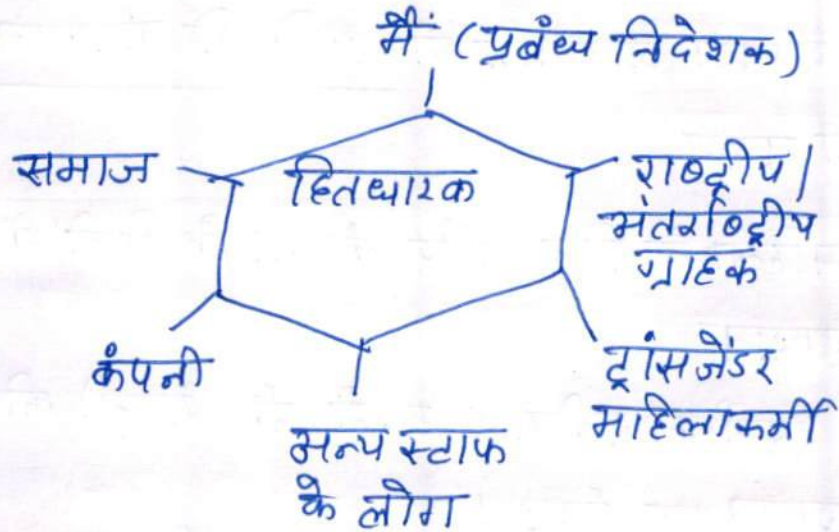 मैं (प्रबंध निदेशक)
समाज
हितधारक
राष्ट्रीय/
अंतर्राष्ट्रीय
ग्राहक
कंपनी
ट्रांसजेंडर
महिलाकर्मी
अन्य स्टाफ
के लोग